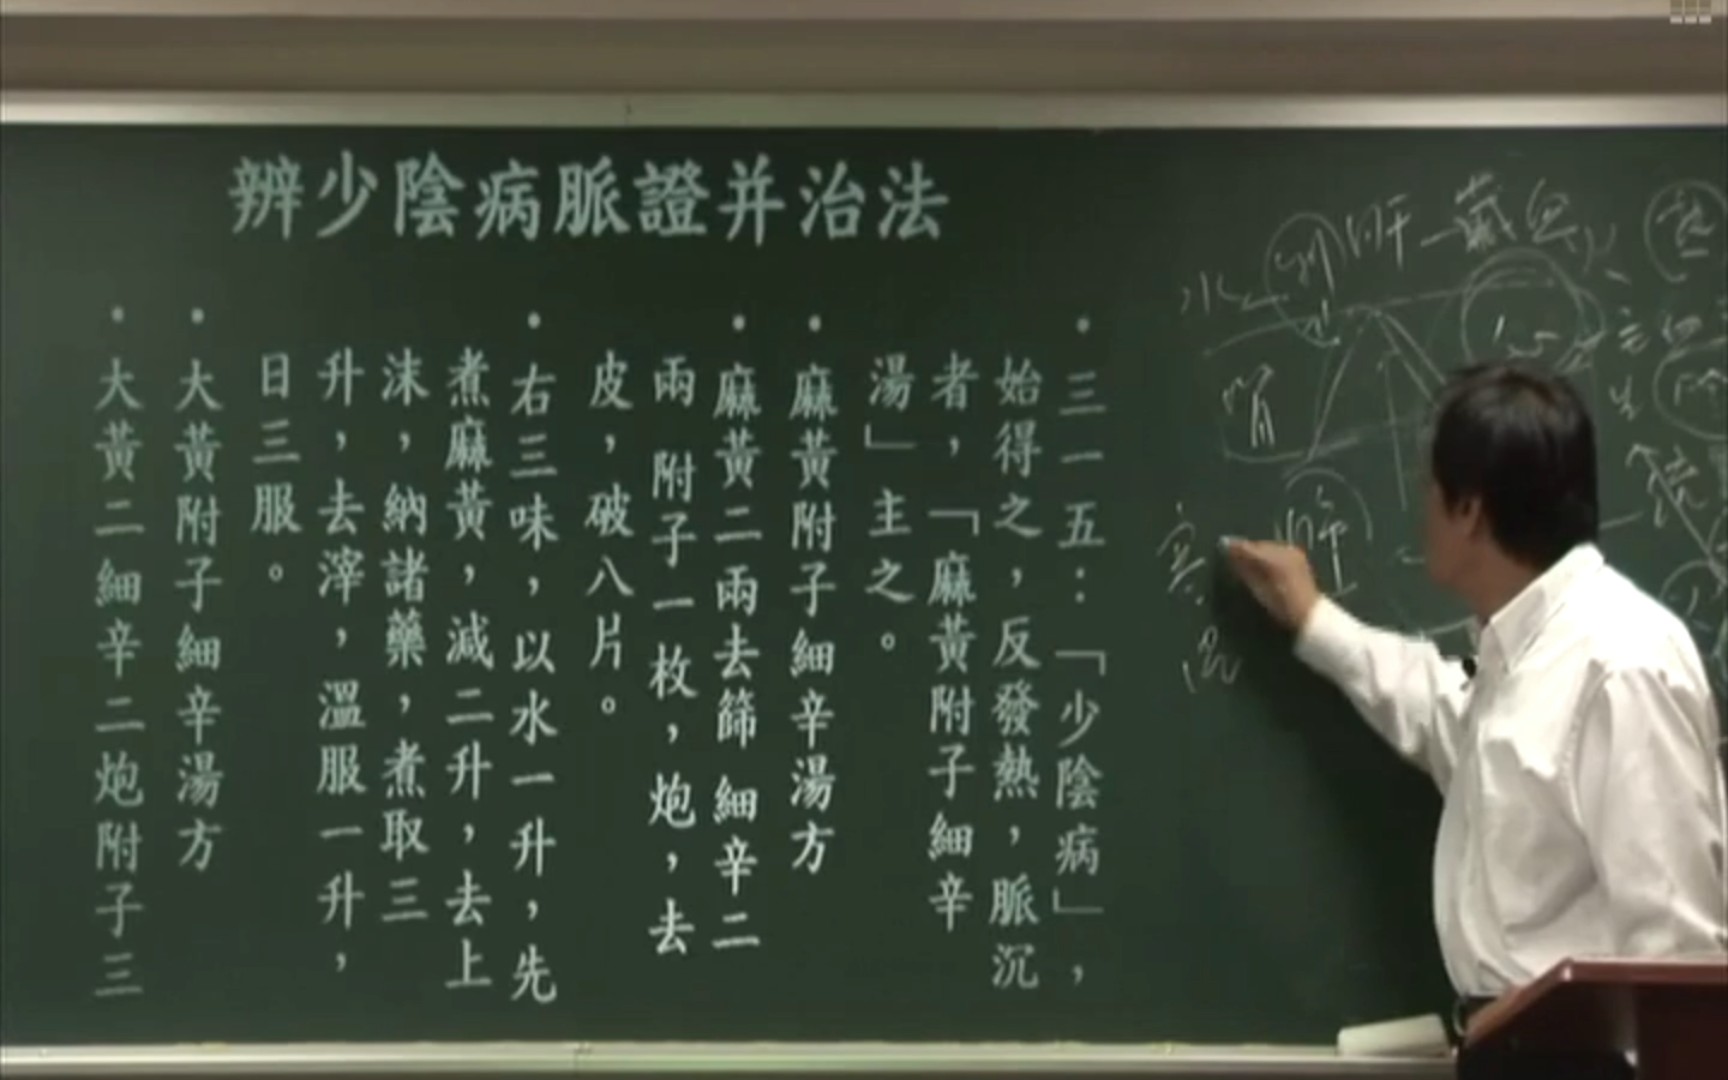 辨少陰病脈證并治法
・三一五：「少陰病」，
始得之，反發熱，脈沉
者，「麻黃附子細辛
湯」主之。
・麻黃附子細辛湯方
・麻黃二兩去篩 細辛二
兩 附子一枚，炮，去
皮，破八片。
・右三味，以水一升，先
煮麻黃，減二升，去上
沫，納諸藥，煮取三
升，去滓，溫服一升，
日三服。
・大黃附子細辛湯方
・大黃二細辛二炮附子三
肝一藏血
水
胃
心
肝